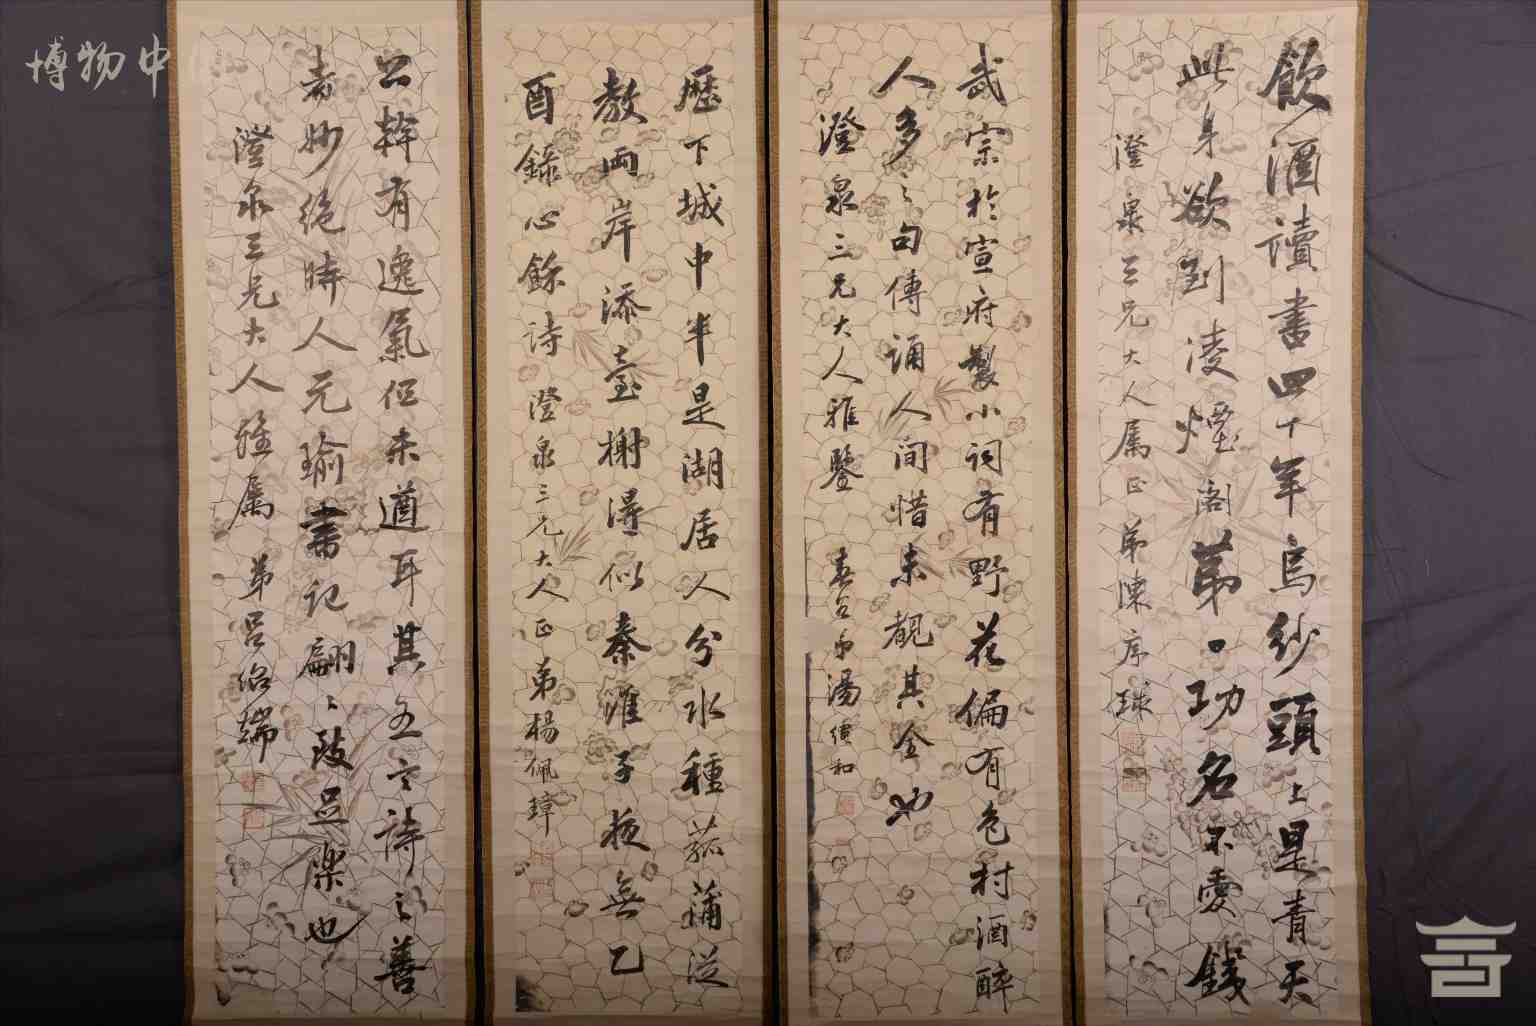 飲酒讀書四十年烏紗頭上是青天
此身欲到凌煙閣第一功名不愛錢
澄泉三兄大人屬正 弟陳序球
武宗於宣府製小詞有野花偏有色村酒醉
人多之句傳誦人间惜未覩其全也
澄泉三兄大人雅鑒 湯繼和
歷下城中半是湖居人分水種菰蒲從
教兩岸添臺榭得似秦淮子夜無乙
酉錄心餘詩 澄泉三兄大人正 弟楊佩璋
公幹有逸氣但未遒耳其五言詩之善
者妙絕時人元瑜書記翩翩致足樂也
澄泉三兄大人雅屬 弟呂佩端
博物中